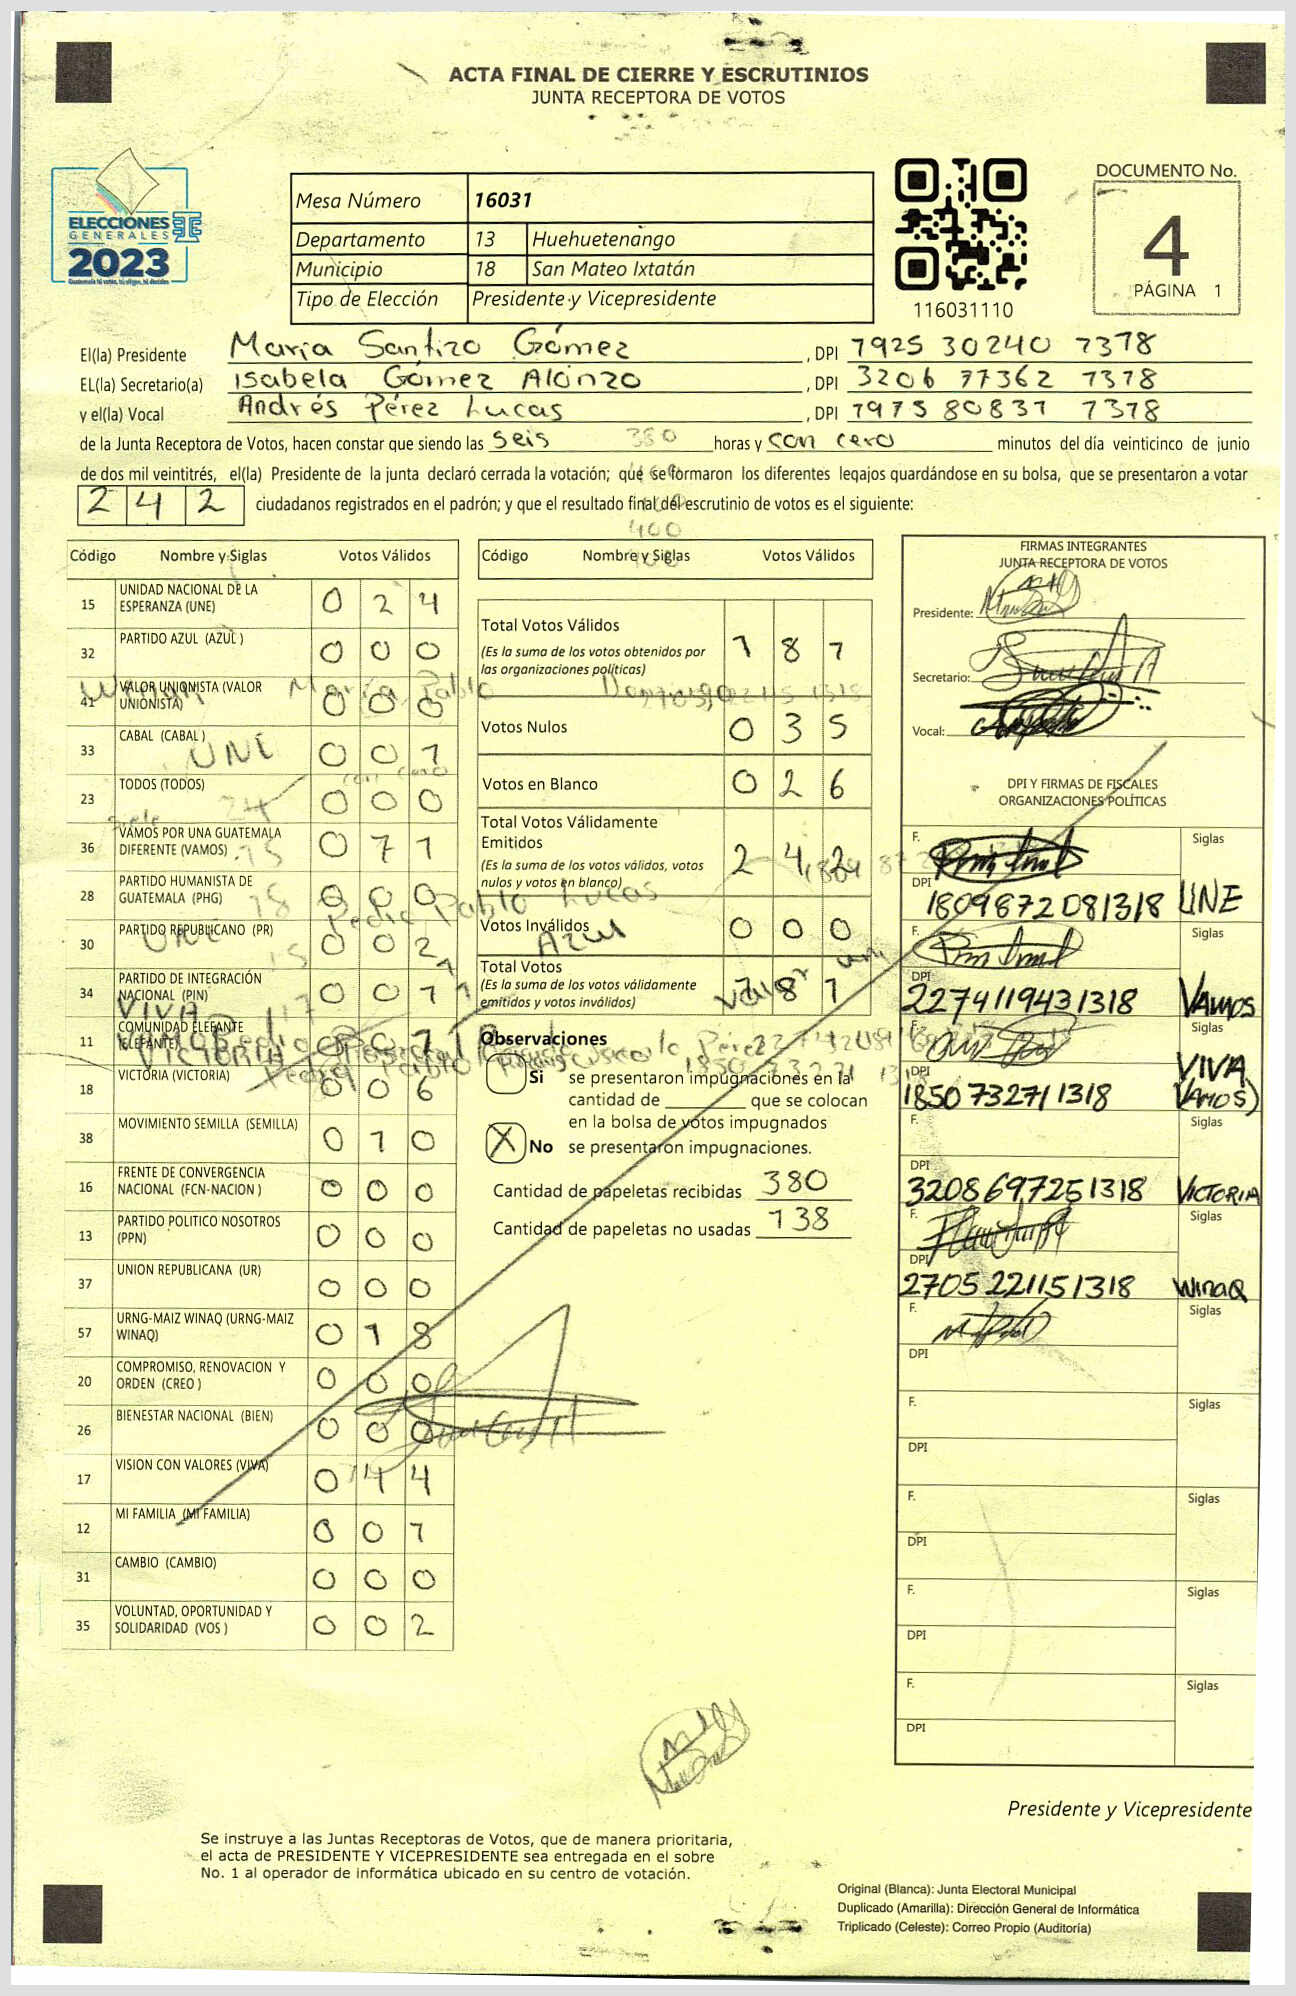 ACTA FINAL DE CIERRE Y ESCRUTINIOS
JUNTA RECEPTORA DE VOTOS
ELECCIONES
GENERALES
2023
Mesa Número 16031
Departamento 13 Huehuetenango
Municipio 18 San Mateo Ixtatán
Tipo de Elección Presidente y Vicepresidente
116031110
DOCUMENTO No.
4
PÁGINA 1
El(la) Presidente María Santizo Gómez, DPI 7925 30240 7378
EL(la) Secretario(a) Isabela Gómez Alonzo, DPI 3206 77362 7378
y el(la) Vocal Andrés Pérez Lucas, DPI 7975 80837 7378
de la Junta Receptora de Votos, hacen constar que siendo las seis horas y con cero minutos del día veinticinco de junio
de dos mil veintitrés, el(la) Presidente de la junta declaró cerrada la votación; que se formaron los diferentes legajos guardándose en su bolsa, que se presentaron a votar
242 ciudadanos registrados en el padrón; y que el resultado final del escrutinio de votos es el siguiente:
Código Nombre y Siglas Votos Válidos
15 UNIDAD NACIONAL DE LA ESPERANZA (UNE) 0 2 4
32 PARTIDO AZUL (AZUL ) 0 0 0
41 VALOR UNIONISTA (VALOR UNIONISTA) 0 0 0
33 CABAL (CABAL ) 0 0 7
23 TODOS (TODOS) 0 0 0
36 VAMOS POR UNA GUATEMALA DIFERENTE (VAMOS) 0 7 1
28 PARTIDO HUMANISTA DE GUATEMALA (PHG) 0 0 0
30 PARTIDO REPUBLICANO (PR) 0 0 2
34 PARTIDO DE INTEGRACIÓN NACIONAL (PIN) 0 0 7
11 COMUNIDAD ELEFANTE (ELEFANTE) 0 0 7
18 VICTORIA (VICTORIA) 0 0 6
38 MOVIMIENTO SEMILLA (SEMILLA) 0 7 0
16 FRENTE DE CONVERGENCIA NACIONAL (FCN-NACION ) 0 0 0
13 PARTIDO POLITICO NOSOTROS (PPN) 0 0 0
37 UNION REPUBLICANA (UR) 0 0 0
57 URNG-MAIZ WINAQ (URNG-MAIZ WINAQ) 0 1 8
20 COMPROMISO, RENOVACION Y ORDEN (CREO ) 0 0 0
26 BIENESTAR NACIONAL (BIEN) 0 0 0
17 VISION CON VALORES (VIVA) 0 4 4
12 MI FAMILIA (MI FAMILIA) 0 0 7
31 CAMBIO (CAMBIO) 0 0 0
35 VOLUNTAD, OPORTUNIDAD Y SOLIDARIDAD (VOS ) 0 0 2
Código Nombre y Siglas Votos Válidos
Total Votos Válidos 1 8 7
(Es la suma de los votos obtenidos por
las organizaciones políticas)
Votos Nulos 0 3 5
Votos en Blanco 0 2 6
Total Votos Válidamente
Emitidos 2 4 2
(Es la suma de los votos válidos, votos
nulos y votos en blanco)
Votos Inválidos 0 0 0
Total Votos 7 8 7
(Es la suma de los votos válidamente
emitidos y votos inválidos)
Observaciones
Si se presentaron impugnaciones en la
cantidad de ________ que se colocan
en la bolsa de votos impugnados
X No se presentaron impugnaciones.
Cantidad de papeletas recibidas 380
Cantidad de papeletas no usadas 138
FIRMAS INTEGRANTES
JUNTA RECEPTORA DE VOTOS
Presidente:
Secretario:
Vocal:
DPI Y FIRMAS DE FISCALES
ORGANIZACIONES POLÍTICAS
F. Siglas
DPI 1809872081318 UNE
F. Siglas
DPI 2274119431318 VAMOS
F. Siglas
DPI 1850732711318 VIVA VAMOS)
F. Siglas
DPI 3208697251318 VICTORIA
F. Siglas
DPI 2705221151318 WINAQ
F. Siglas
DPI
F. Siglas
DPI
F. Siglas
DPI
F. Siglas
DPI
F. Siglas
DPI
Presidente y Vicepresidente
Se instruye a las Juntas Receptoras de Votos, que de manera prioritaria,
el acta de PRESIDENTE Y VICEPRESIDENTE sea entregada en el sobre
No. 1 al operador de informática ubicado en su centro de votación.
Original (Blanca): Junta Electoral Municipal
Duplicado (Amarilla): Dirección General de Informática
Triplicado (Celeste): Correo Propio (Auditoría)